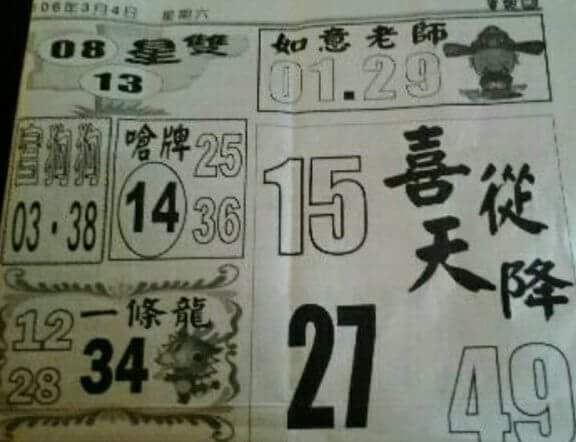 106年3月4日 星期六
08 星雙
13
如意老師
01.29
狗狗
03·38
嗆牌 25
14 36
15
喜從
天降
一條龍
12 34
28
27
49